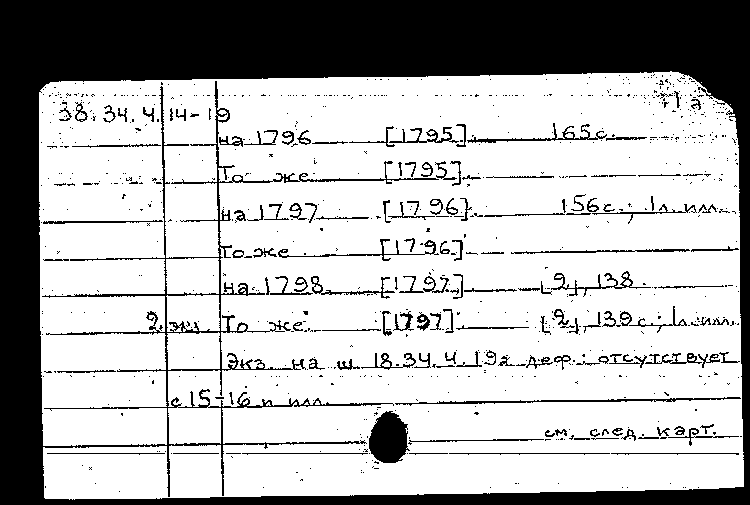 38.34.4.14-19
на 1796 [1795]. 165с.
То же [1795].
на 1797 [1796]. 156с.; 1л. илл.
То же [1796]
на 1798 [1797] [2], 138
2 экз. То же [1797]. [2], 139 с.; 1л. илл.
Экз. на ш. 18.34.4.19а деф.: отсутствует
с 15-16 и илл.
см. след. карт.